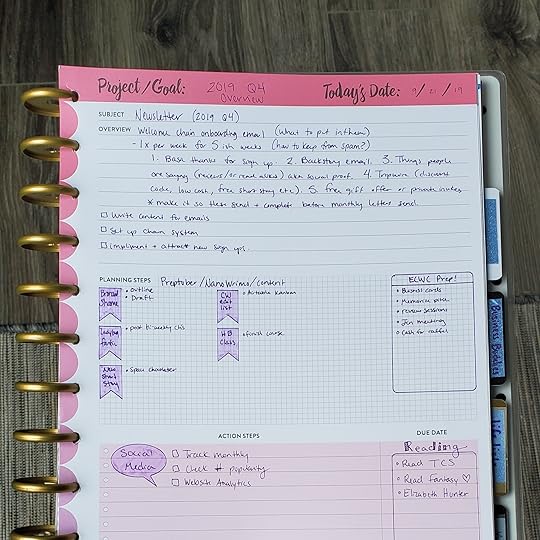 Project/Goal: 2019 Q4 Overview
Today's Date: 9/21/19
SUBJECT Newsletter (2019 Q4)
OVERVIEW Welcome chain onboarding email (What to put in them)
- 1x per week for 5 ish weeks (how to keep from spam?)
1. Basic thanks for sign up. 2. Backstory email. 3. Things people
are saying (reviews/or readers) aka social proof. 4. (discount
code, low cost, free short story etc). 5. free gift offer or private invites
* make it so these send + complete before monthly letters send.
Write content for emails
Set up chain system
impliment + attract new sign ups.
PLANNING STEPS Preptober/NanoWrimo/content
Broken Shame
• outline
• Draft
CW edit list
• Airtable Kanban
Ladybug fanfic
• post bi-weekly chs
HB Class
• finish course
New Short Story
• Space character
ECWC Prep!
• Business cards
• Memorize pitch
• review sessions
• Jen meeting
• Cash for raffle
ACTION STEPS
DUE DATE
Social Media
Track monthly
Check # popularity
Website Analytics
Reading
• Read TCS
• Read Fantasy ♡
• Elizabeth Hunter
Business Buddies